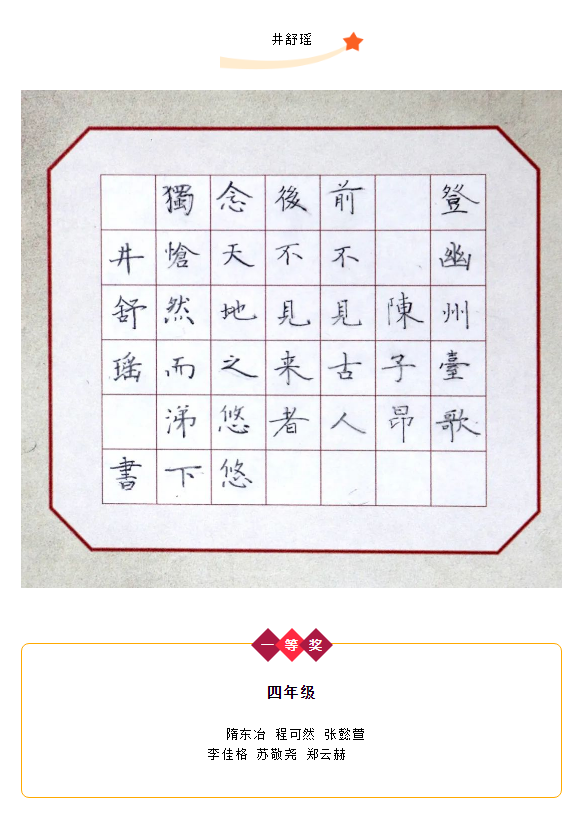 井舒瑶
登幽州臺歌
陳子昂
前不見古人
後不見来者
念天地之悠悠
獨愴然而涕下
井舒瑶書
一等奖
四年级
隋东冶 程可然 张懿萱
李佳格 苏敬尧 郑云赫